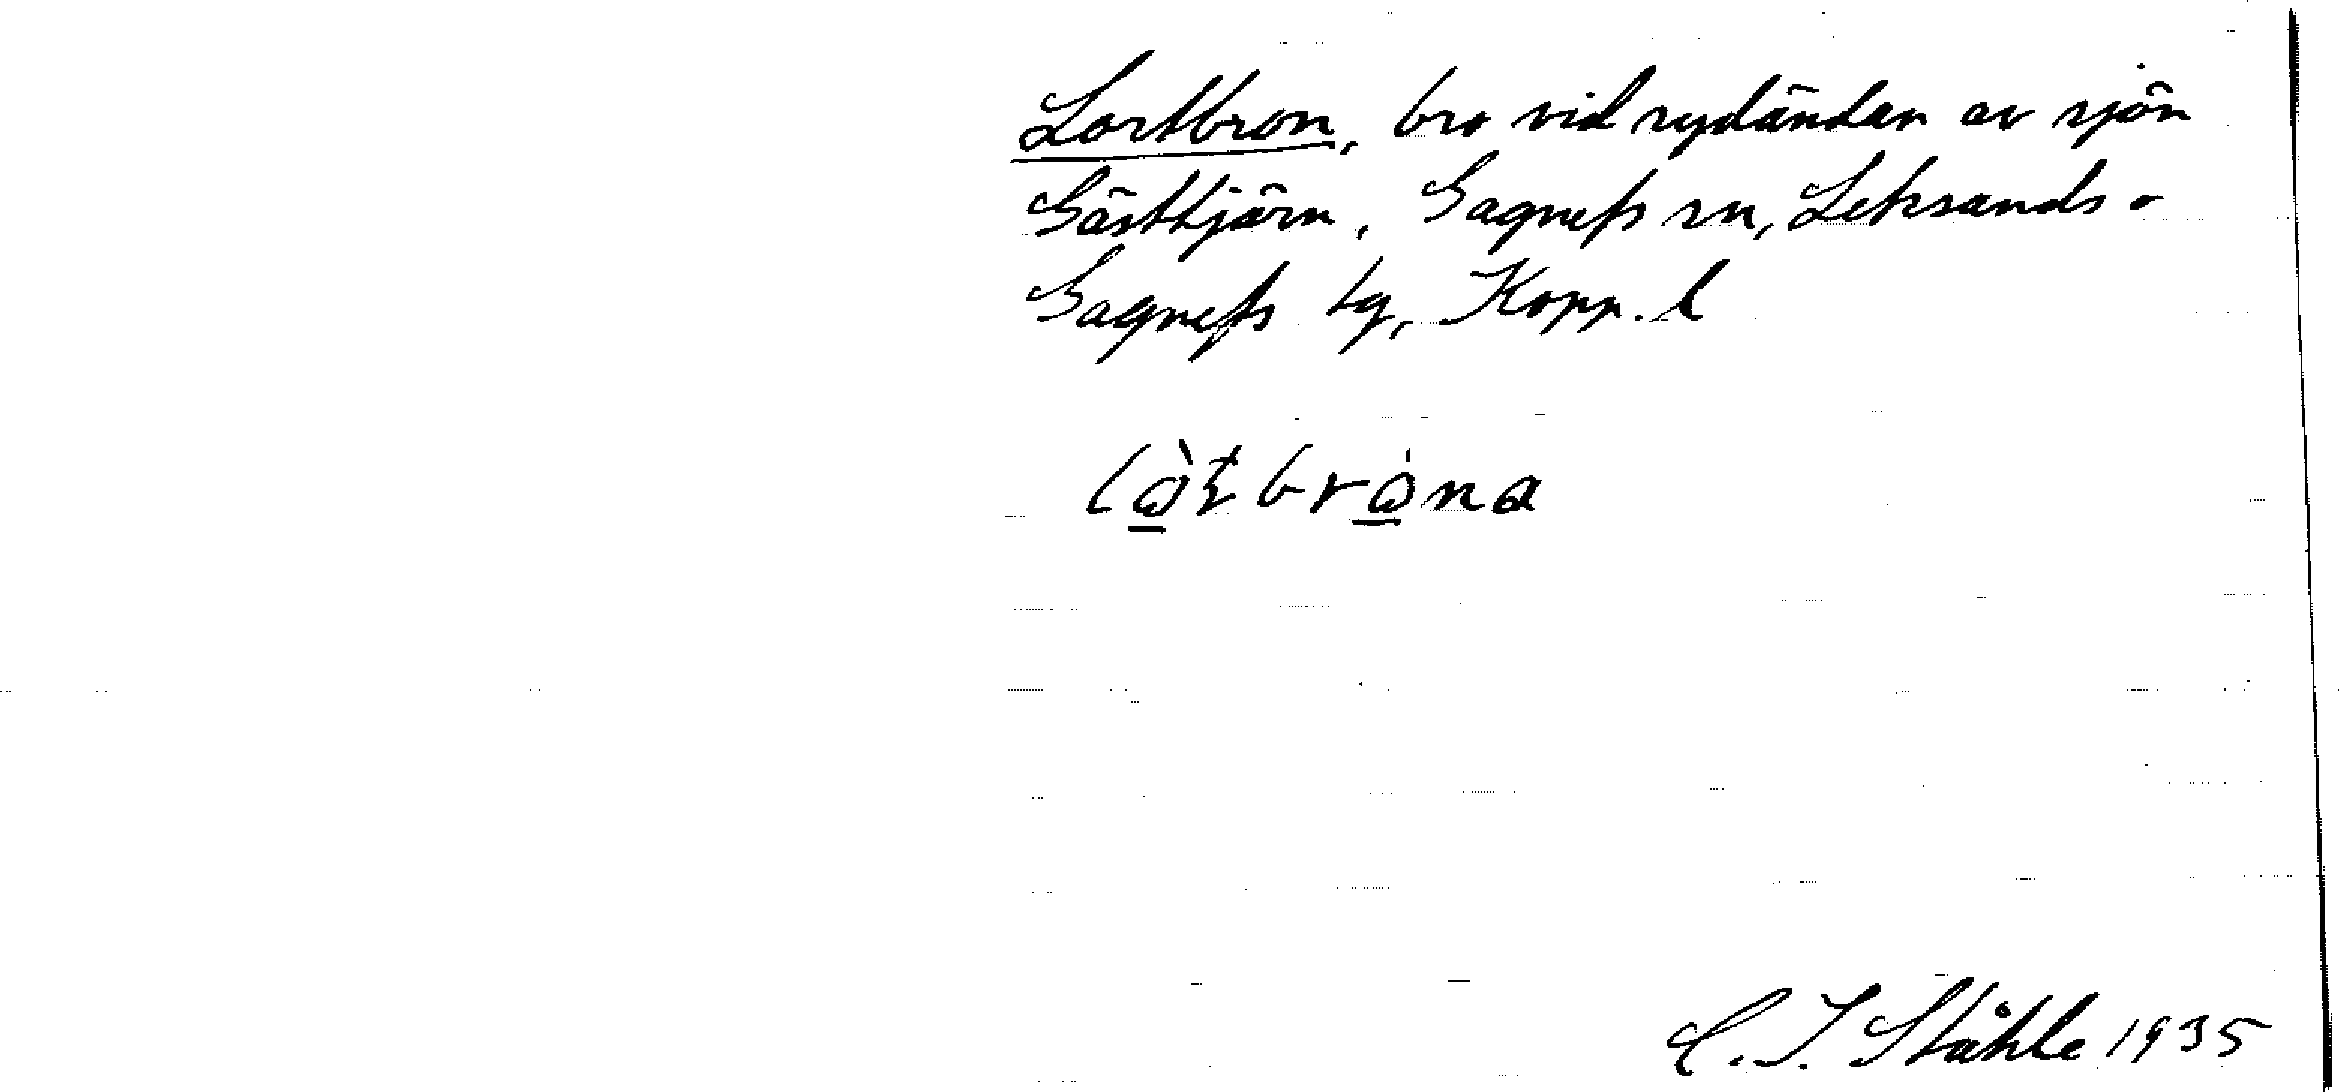 Lortbron, bro vid sydändan av sjön
Gästtjärn, Gagnefs sn, Leksands o
Gagnefs tg, Kopp. l
C. I. Ståhle 1935